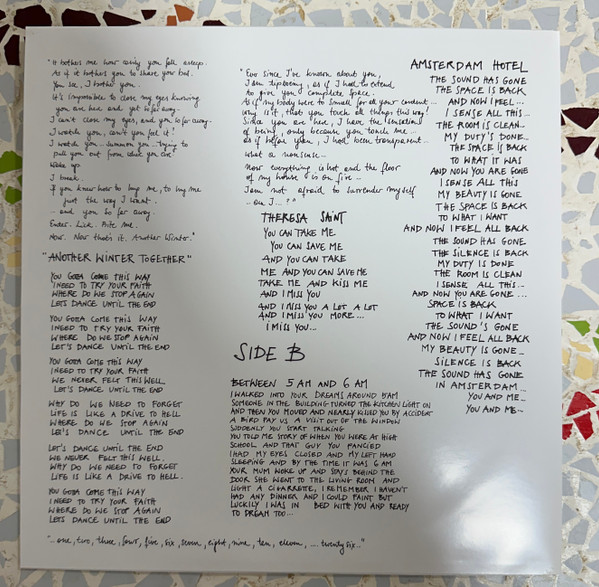 "It bothers me how easily you fall asleep.
As if it bothers you to share your bed.
You see, I bother you.
It's impossible to close my eyes knowing
you are here and yet so far away.
I can't close my eyes, and you so far away.
I watch you, can't you feel it?
I watch you... summon you... trying to
pull you out from where you are
Wake up.
I break.
if you knew how to hug me, to hug me
just the way I want.
... and you so far away.
Enter. Lick. Bite me.
Now. Now that's it. Another Winter."
"ANOTHER WINTER TOGETHER"
YOU GOTA COME THIS WAY
I NEED TO TRY YOUR FAITH
WHERE DO WE STOP AGAIN
LETS DANCE UNTIL THE END
YOU GOTA COME THIS WAY
I NEED TO TRY YOUR FAITH
WHERE DO WE STOP AGAIN
LET'S DANCE UNTIL THE END
YOU GOTA COME THIS WAY
I NEED TO TRY YOUR FAITH
WE NEVER FELT THIS WELL
LET'S DANCE UNTIL THE END
WHY DO WE NEED TO FORGET
LIFE IS LIKE A DRIVE TO HELL
WHERE DO WE STOP AGAIN
LET'S DANCE UNTIL THE END
LET'S DANCE UNTIL THE END
WE NEVER FELT THIS WELL.
WHY DO WE NEED TO FORGET
LIFE IS LIKE A DRIVE TO HELL.
YOU GOTA COME THIS WAY
I NEED TO TRY YOUR FAITH
WHERE DO WE STOP AGAIN
LETS DANCE UNTIL THE END
"...one, two, three, four, five, six, seven, eight, nine, ten, eleven, .... twenty six..."
"Ever since I've known about you,
I am tiptoeing, as if I had to extend
to give you complete space.
As if my body were to small for all your content...
Why is it, that you touch all things this way?
Since you are here, I have the sensation
of being, only because you touch me...
as if before you, I had been transparent...
what a nonsense...
Now everything is hot and the floor
of my house is on fire...
I am not afraid to surrender myself
...am I...?"
THERESA SAINT
YOU CAN TAKE ME
YOU CAN SAVE ME
AND YOU CAN TAKE
ME AND YOU CAN SAVE ME
TAKE ME AND KISS ME
AND I MISS YOU
AND I MISS YOU A LOT A LOT
AND I MISS YOU MORE...
I MISS YOU...
SIDE B
BETWEEN 5 AM AND 6 AM
I WALKED INTO YOUR DREAMS AROUND 5 AM
SOMEONE IN THE BUILDING TURNED THE KITCHEN LIGHT ON
AND THEN YOU MOVED AND NEARLY KISSED YOU BY ACCIDENT
A BIRD PAY US A VISIT OUT OF THE WINDOW
SUDDENLY YOU START TALKING
YOU TOLD ME STORY OF WHEN YOU WERE AT HIGH
SCHOOL AND THAT GUY YOU FANCIED
I HAD MY EYES CLOSED AND MY LEFT HAND
SLEEPING AND BY THE TIME IT WAS 6 AM
YOUR MUM WOKE UP AND STAYS BEHIND THE
DOOR SHE WENT TO THE LIVING ROOM AND
LIGHT A CIGARRETTE, I REMEMBER I HAVEN'T
HAD ANY DINNER AND I COULD FAINT BUT
LUCKILY I WAS IN BED WITH YOU AND READY
TO DREAM TOO...
AMSTERDAM HOTEL
THE SOUND HAS GONE
THE SPACE IS BACK
AND NOW I FEEL...
I SENSE ALL THIS...
THE ROOM IS CLEAN...
MY DUTY'S DONE...
THE SPACE IS BACK
TO WHAT IT WAS
AND NOW YOU ARE GONE
I SENSE ALL THIS
MY BEAUTY IS GONE
THE SPACE IS BACK
TO WHAT I WANT
AND NOW I FEEL ALL BACK
THE SOUND HAS GONE
THE SILENCE IS BACK
MY DUTY IS DONE
THE ROOM IS CLEAN
I SENSE ALL THIS...
AND NOW YOU ARE GONE...
SPACE IS BACK
TO WHAT I WANT
THE SOUND'S GONE
AND NOW I FEEL ALL BACK
MY BEAUTY IS GONE...
SILENCE IS BACK
THE SOUND HAS GONE
IN AMSTERDAM...
YOU AND ME...
YOU AND ME...